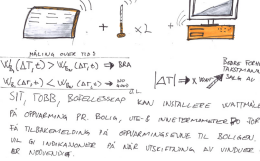 + x2 +
MÅLING OVER TID
(ΔT, t) > (ΔT, t) ⇒ BRA
(ΔT, t) < (ΔT, t) ⇒
BEDRE FORM
|ΔT| ⇒ x
SALG AV
SIT, TOBB, BORETTSLAG KAN INSTALLERE WATTMÅL
PÅ OPPVARMING PR. BOLIG, UTE- & INNETERMOMETER FOR
FÅ TILBAKEMELDING PÅ OPPVARMINGSEVNE TIL BOLIGEN.
VIL GI INDIKASJONER PÅ NÅR UTSKIFTNING AV VINDUER
ER NØDVENDIG.